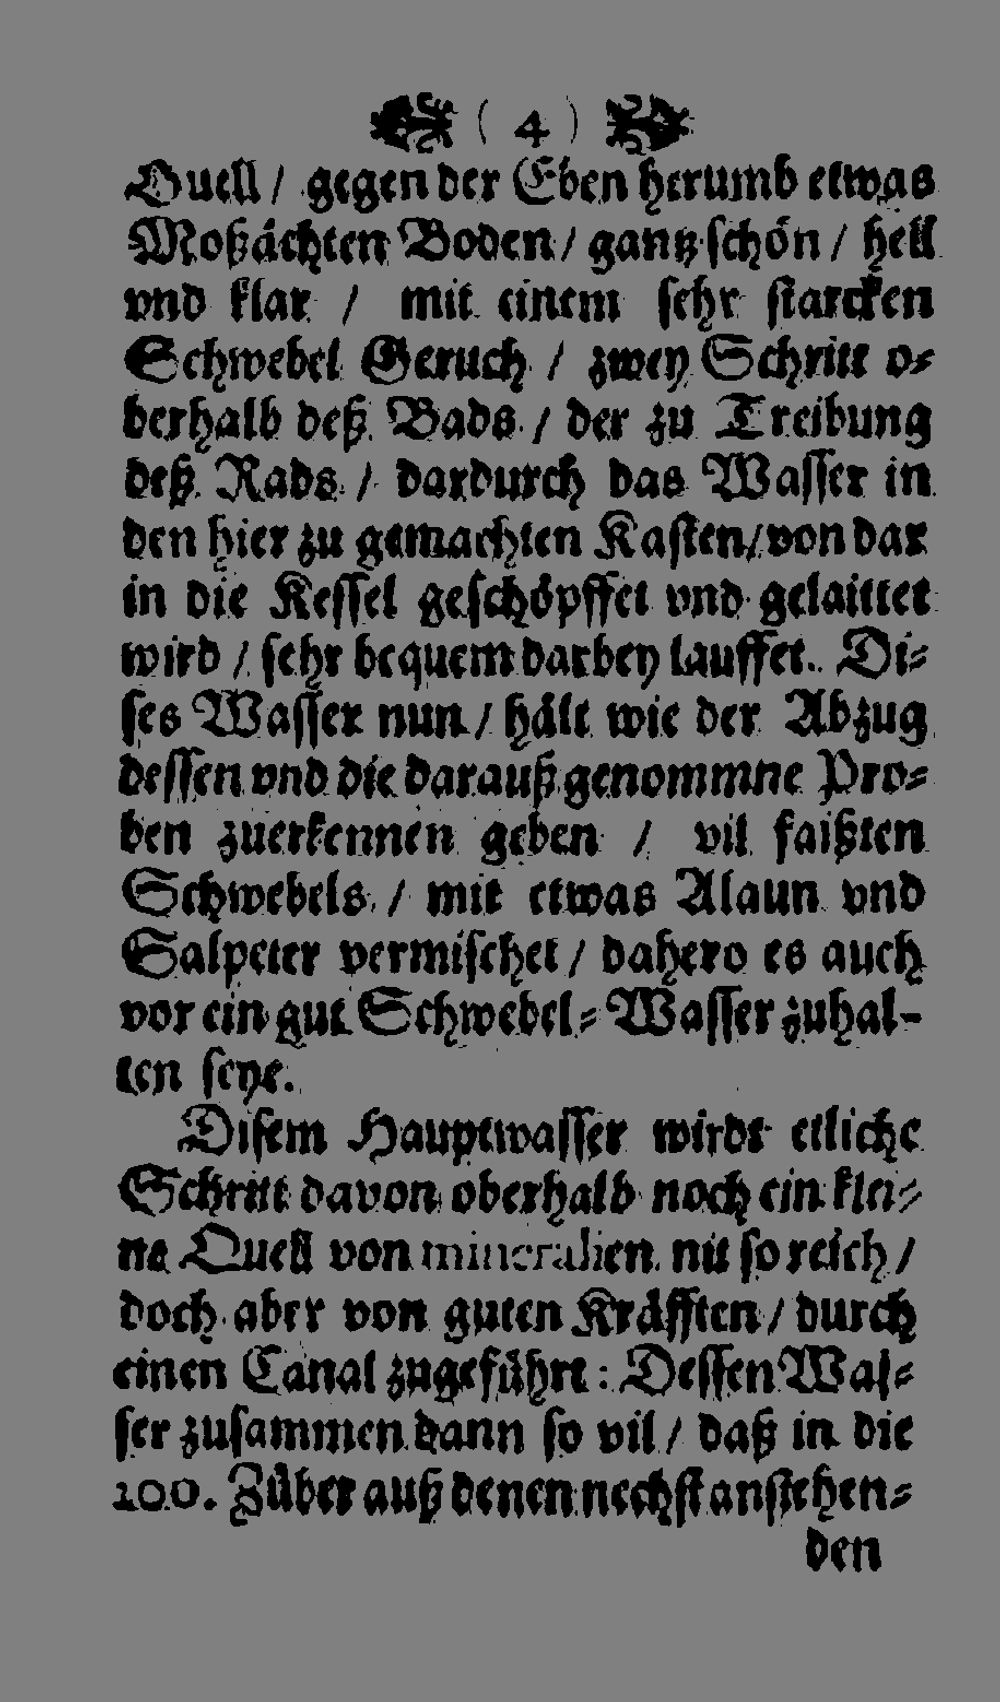 ( 4 )
Quell / gegen der Eben herumb etwas
Moßächten Boden / gantz schön / hell
vnd klar / mit einem sehr starcken
Schwebel Geruch / zwey Schritt o-
berhalb deß Bads / der zu Treibung
deß Rads / dardurch das Wasser in
den hier zu gemachten Kasten / von dar
in die Kessel geschöpffet vnd gelaittet
wird / sehr bequem darbey lauffet. Di-
ses Wasser nun / hält wie der Abzug
dessen vnd die darauß genommne Pro-
ben zuerkennen geben / vil faißten
Schwebels / mit etwas Alaun vnd
Salpeter vermischet / dahero es auch
vor ein gut Schwebel-Wasser zuhal-
ten seye.
Disem Hauptwasser wirdt etliche
Schritt davon oberhalb noch ein klei-
ne Quell von mineralien nit so reich /
doch aber von guten Kräfften / durch
einen Canal zugeführt : Dessen Was-
ser zusammen dann so vil / daß in die
100. Züber auß denen nechst anstehen-
den